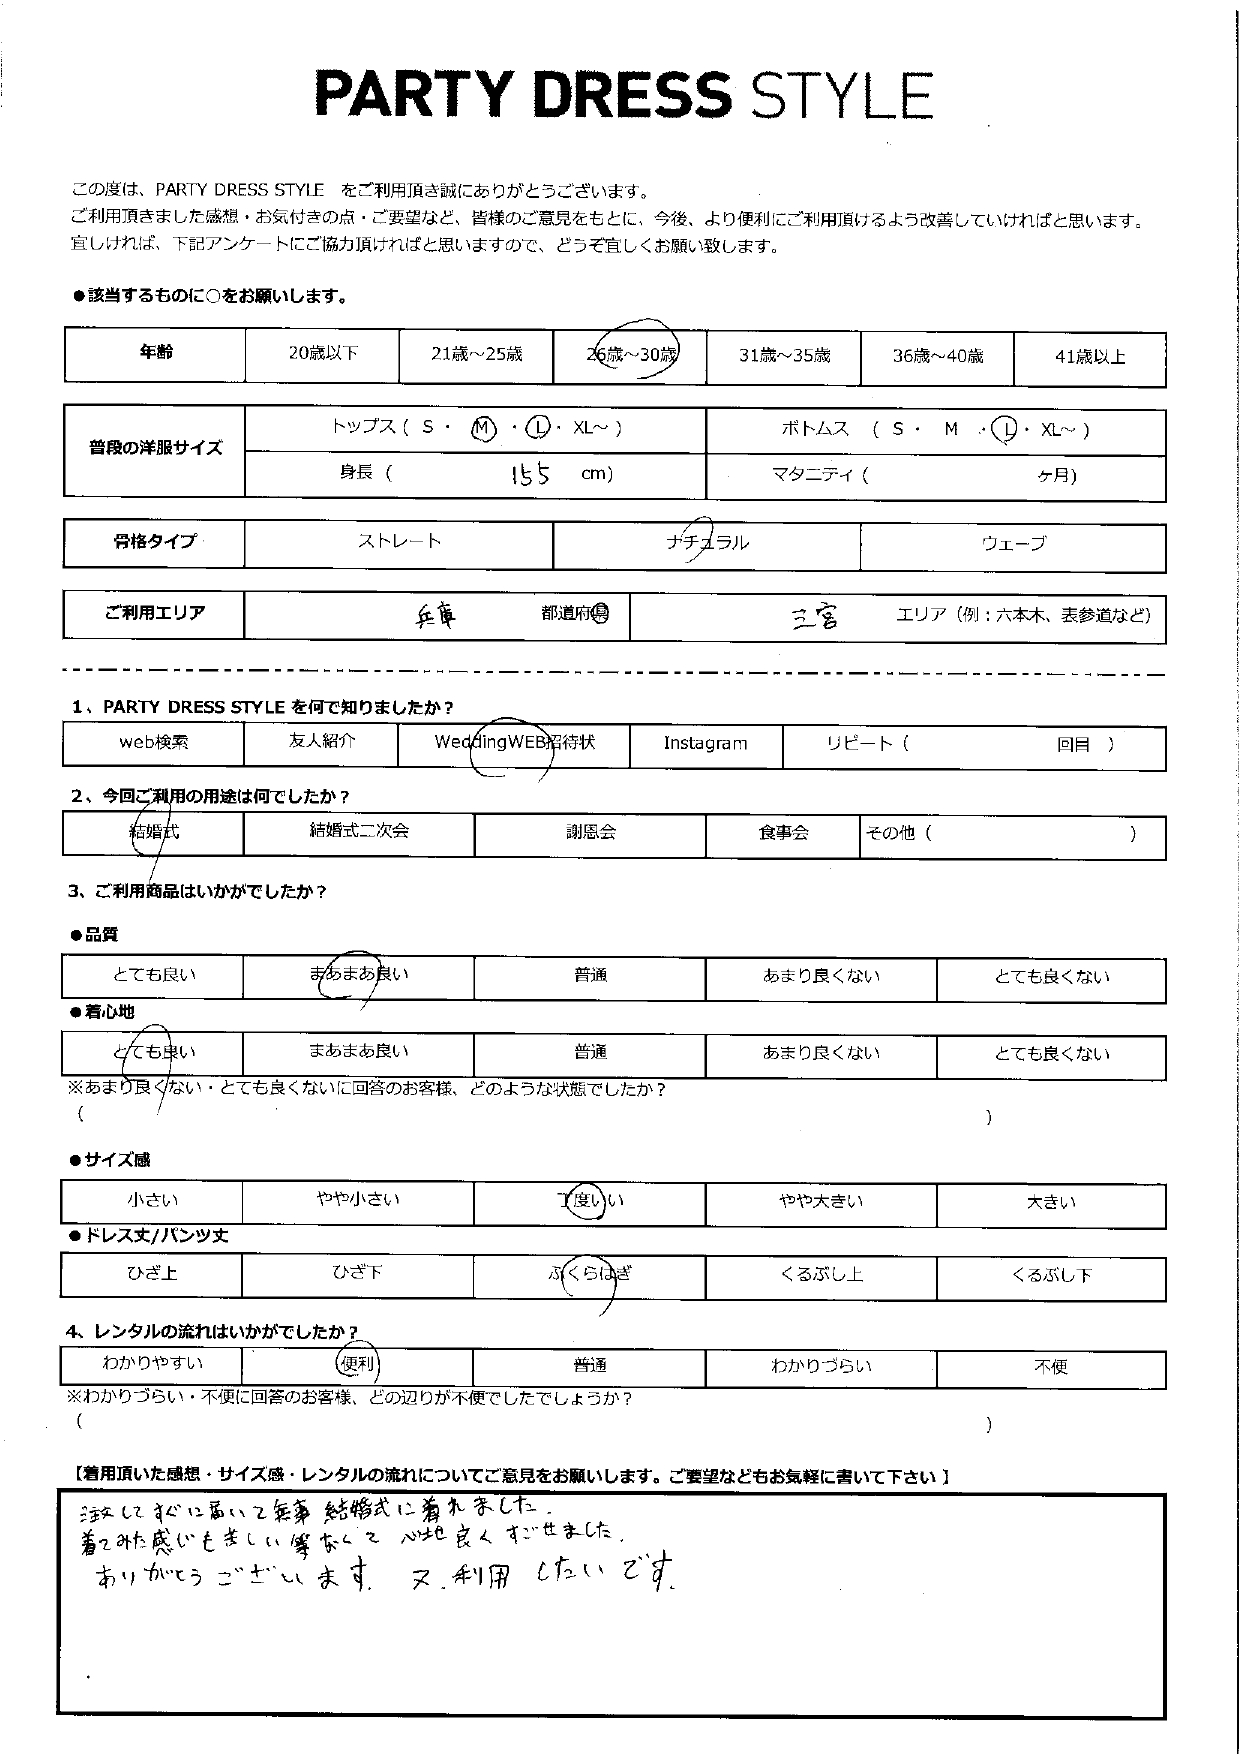 PARTY DRESS STYLE
この度は、PARTY DRESS STYLE をご利用頂き誠にありがとうございます。
ご利用頂きました感想・お気付きの点・ご要望など、皆様のご意見をもとに、今後、より便利にご利用頂けるよう改善していければと思います。
宜しければ、下記アンケートにご協力頂ければと思いますので、どうぞ宜しくお願い致します。
●該当するものに○をお願いします。
年齢 20歳以下 21歳～25歳 26歳～30歳 31歳～35歳 36歳～40歳 41歳以上
普段の洋服サイズ トップス ( S ・ M ・ L ・ XL～ ) ボトムス ( S ・ M ・ L ・ XL～ )
身長 ( 155 cm) マタニティ ( ヶ月)
骨格タイプ ストレート ナチュラル ウェーブ
ご利用エリア 兵庫 都道府県 三宮 エリア（例：六本木、表参道など）
1、PARTY DRESS STYLE を何で知りましたか？
web検索 友人紹介 WeddingWEB招待状 Instagram リピート ( 回目 )
2、今回ご利用の用途は何でしたか？
結婚式 結婚式二次会 謝恩会 食事会 その他 ( )
3、ご利用商品はいかがでしたか？
●品質
とても良い まあまあ良い 普通 あまり良くない とても良くない
●着心地
とても良い まあまあ良い 普通 あまり良くない とても良くない
※あまり良くない・とても良くないに回答のお客様、どのような状態でしたか？
( )
●サイズ感
小さい やや小さい 丁度いい やや大きい 大きい
●ドレス丈/パンツ丈
ひざ上 ひざ下 ふくらはぎ くるぶし上 くるぶし下
4、レンタルの流れはいかがでしたか？
わかりやすい 便利 普通 わかりづらい 不便
※わかりづらい・不便に回答のお客様、どの辺りが不便でしたでしょうか？
( )
【着用頂いた感想・サイズ感・レンタルの流れについてご意見をお願いします。ご要望などもお気軽に書いて下さい】
注文してすぐに届いて無事 結婚式に着れました.
着てみた感じも苦しい等なくて 心地良くすごせました.
ありがとうございます. 又.利用したいです.